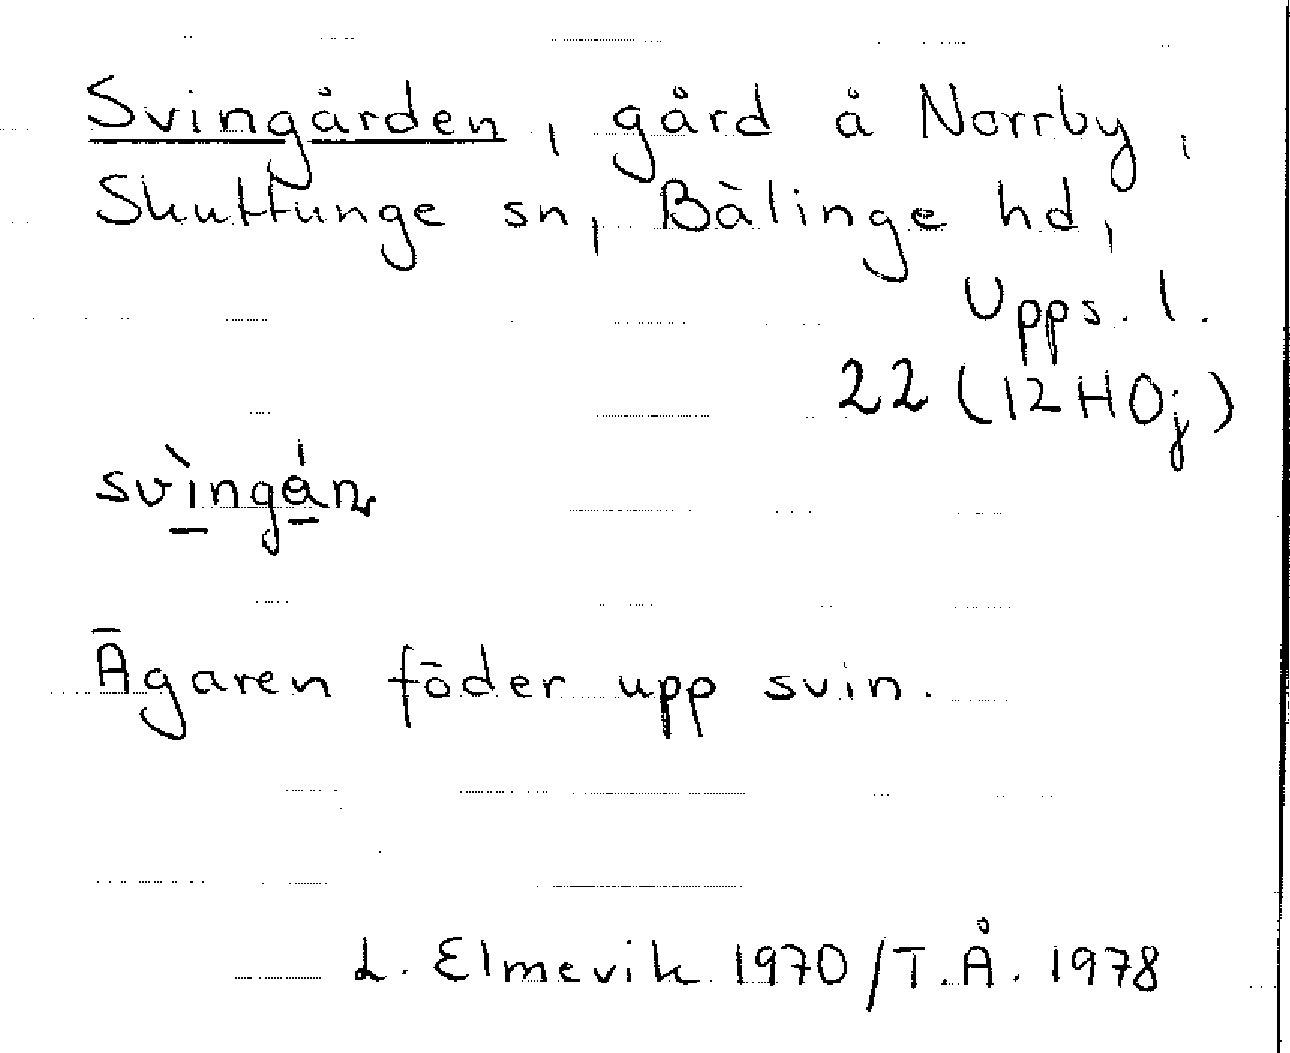 Svingården, gård å Norrby,
Skuttunge sn, Bälinge hd,
Upps. l.
22 (12HOj)
Ägaren föder upp svin.
L. Elmevik 1970/T.Å. 1978